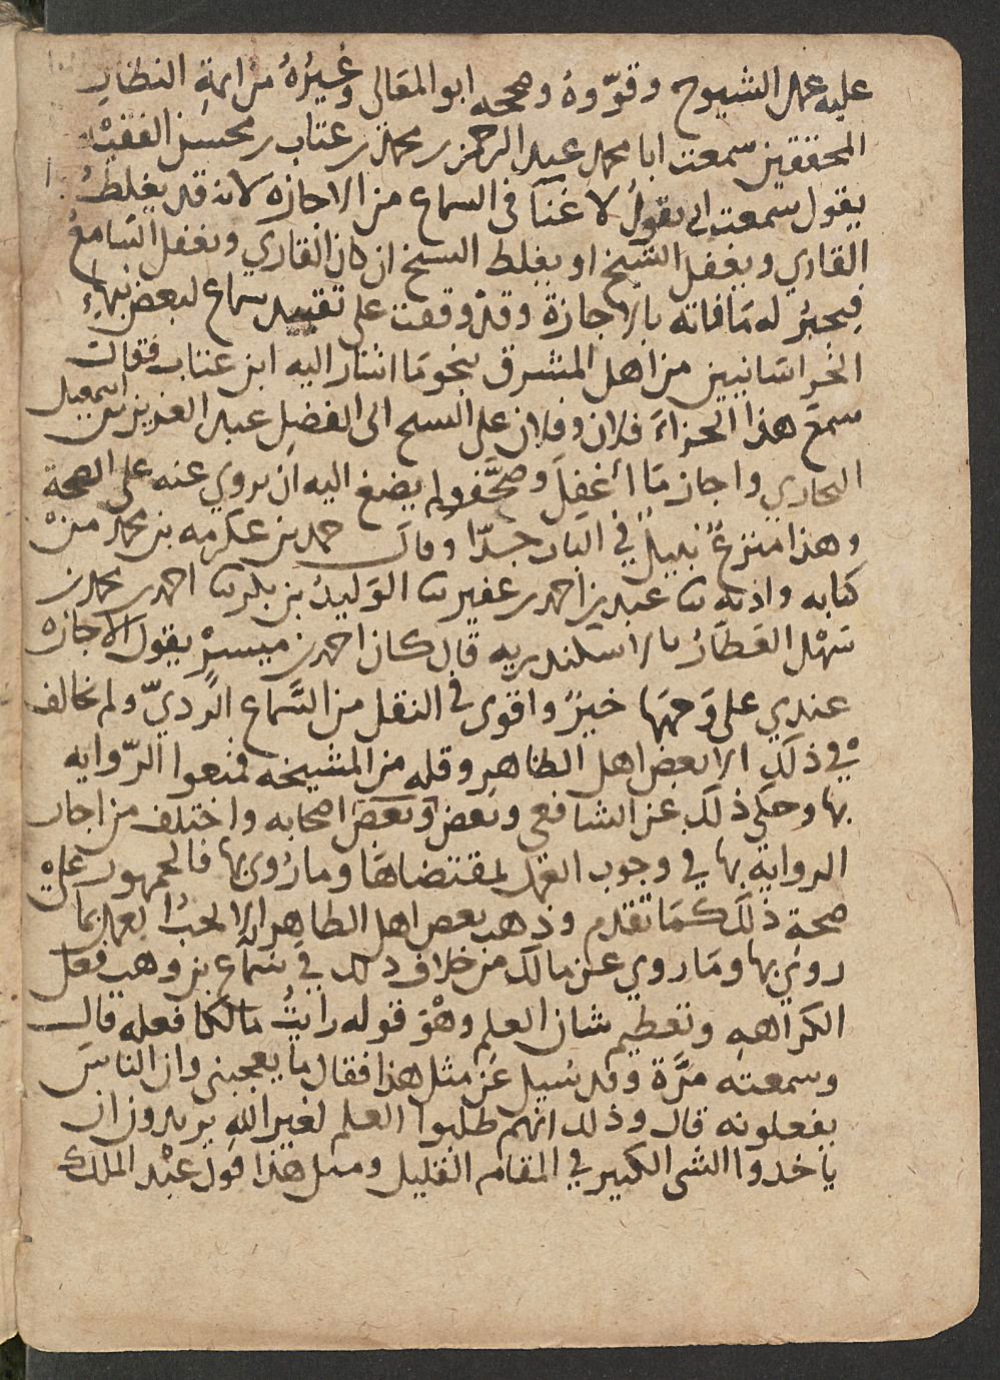 عليه عمل الشيوخ وقوّوهُ وصححه ابو المعَالى وغيرُهُ من ايمة النظارِ
المحققين سمعت ابا محمد عبد الرحمن بن محمد بن عتاب بن محسن الفقيْه
يقول سمعت ابي يقولُ لا غنَا في السماع من الاجازه لانه قد يغلطُ
القاري ويغفل الشيخ او يغلط الشيخ ان كان القاري ويغفل السَّامعُ
فيجبرُ له مَا فاته بالاجازة وقد وقفت على تقييد سماع لبعض نبهاءِ
الخراسَانيين من اهل المشرق بنحو مَا اشار اليه ابن عتاب فقال
سمعَ هذا الجزاءَ فلان وفلان على الشيح ابى الفضل عبد العزيز بن اسمعيل
البخاري واجاز مَا اُغفِلَ وصُحَّف ولم يصْغ اليه ان يروي عنه على الصحة
وهذا منزعٌ نبيلٌ في الباب جدّا وقال حمد بن عكرمه بن محمد من
كتابه واذنه نا عبد بن احمد بن عفير نا الوَليدُ بن بكر نا احمد بن محمد بن
سَهْل العَطارُ بالاسكندريه قال كان احمد بن ميسرْ يقول الاجازه
عندي على وَجهَها خيرٌ واقوى في النقل من السَّماع الرديّ ولم يخالف
في ذلك الا بعض اهل الظاهر وقله من المشيخه فمنعوا الرّوايه
بها وحكي ذلك عن الشافعي وبعض وبعض اصحابه واختلف من اجاز
الروايةَ بها في وجوب العمل بمقتضاهَا وما رُوي بها فالجمهور على
صحةِ ذلك كمَا تقدم وذهب بعض اهل الظاهر انه لا يجبُ العمل بما
روي بها ومَا روي عن مالك من خلاف ذلك في سَماع بن وهب فعلى
الكراهه وتعظيم شان العلم وهْوَ قوله رايتُ مالكا فعله قال
وسمعته مَرَّة وقد سُيل عَن مثل هذا فقال ما يعجبني وان الناسَ
يفعلونه قال وذلك انهم طلبوا العلم لغير الله يريدون ان
ياخذوا الشي الكبير في المقام القليل ومثل هذا قول عبْد الملك